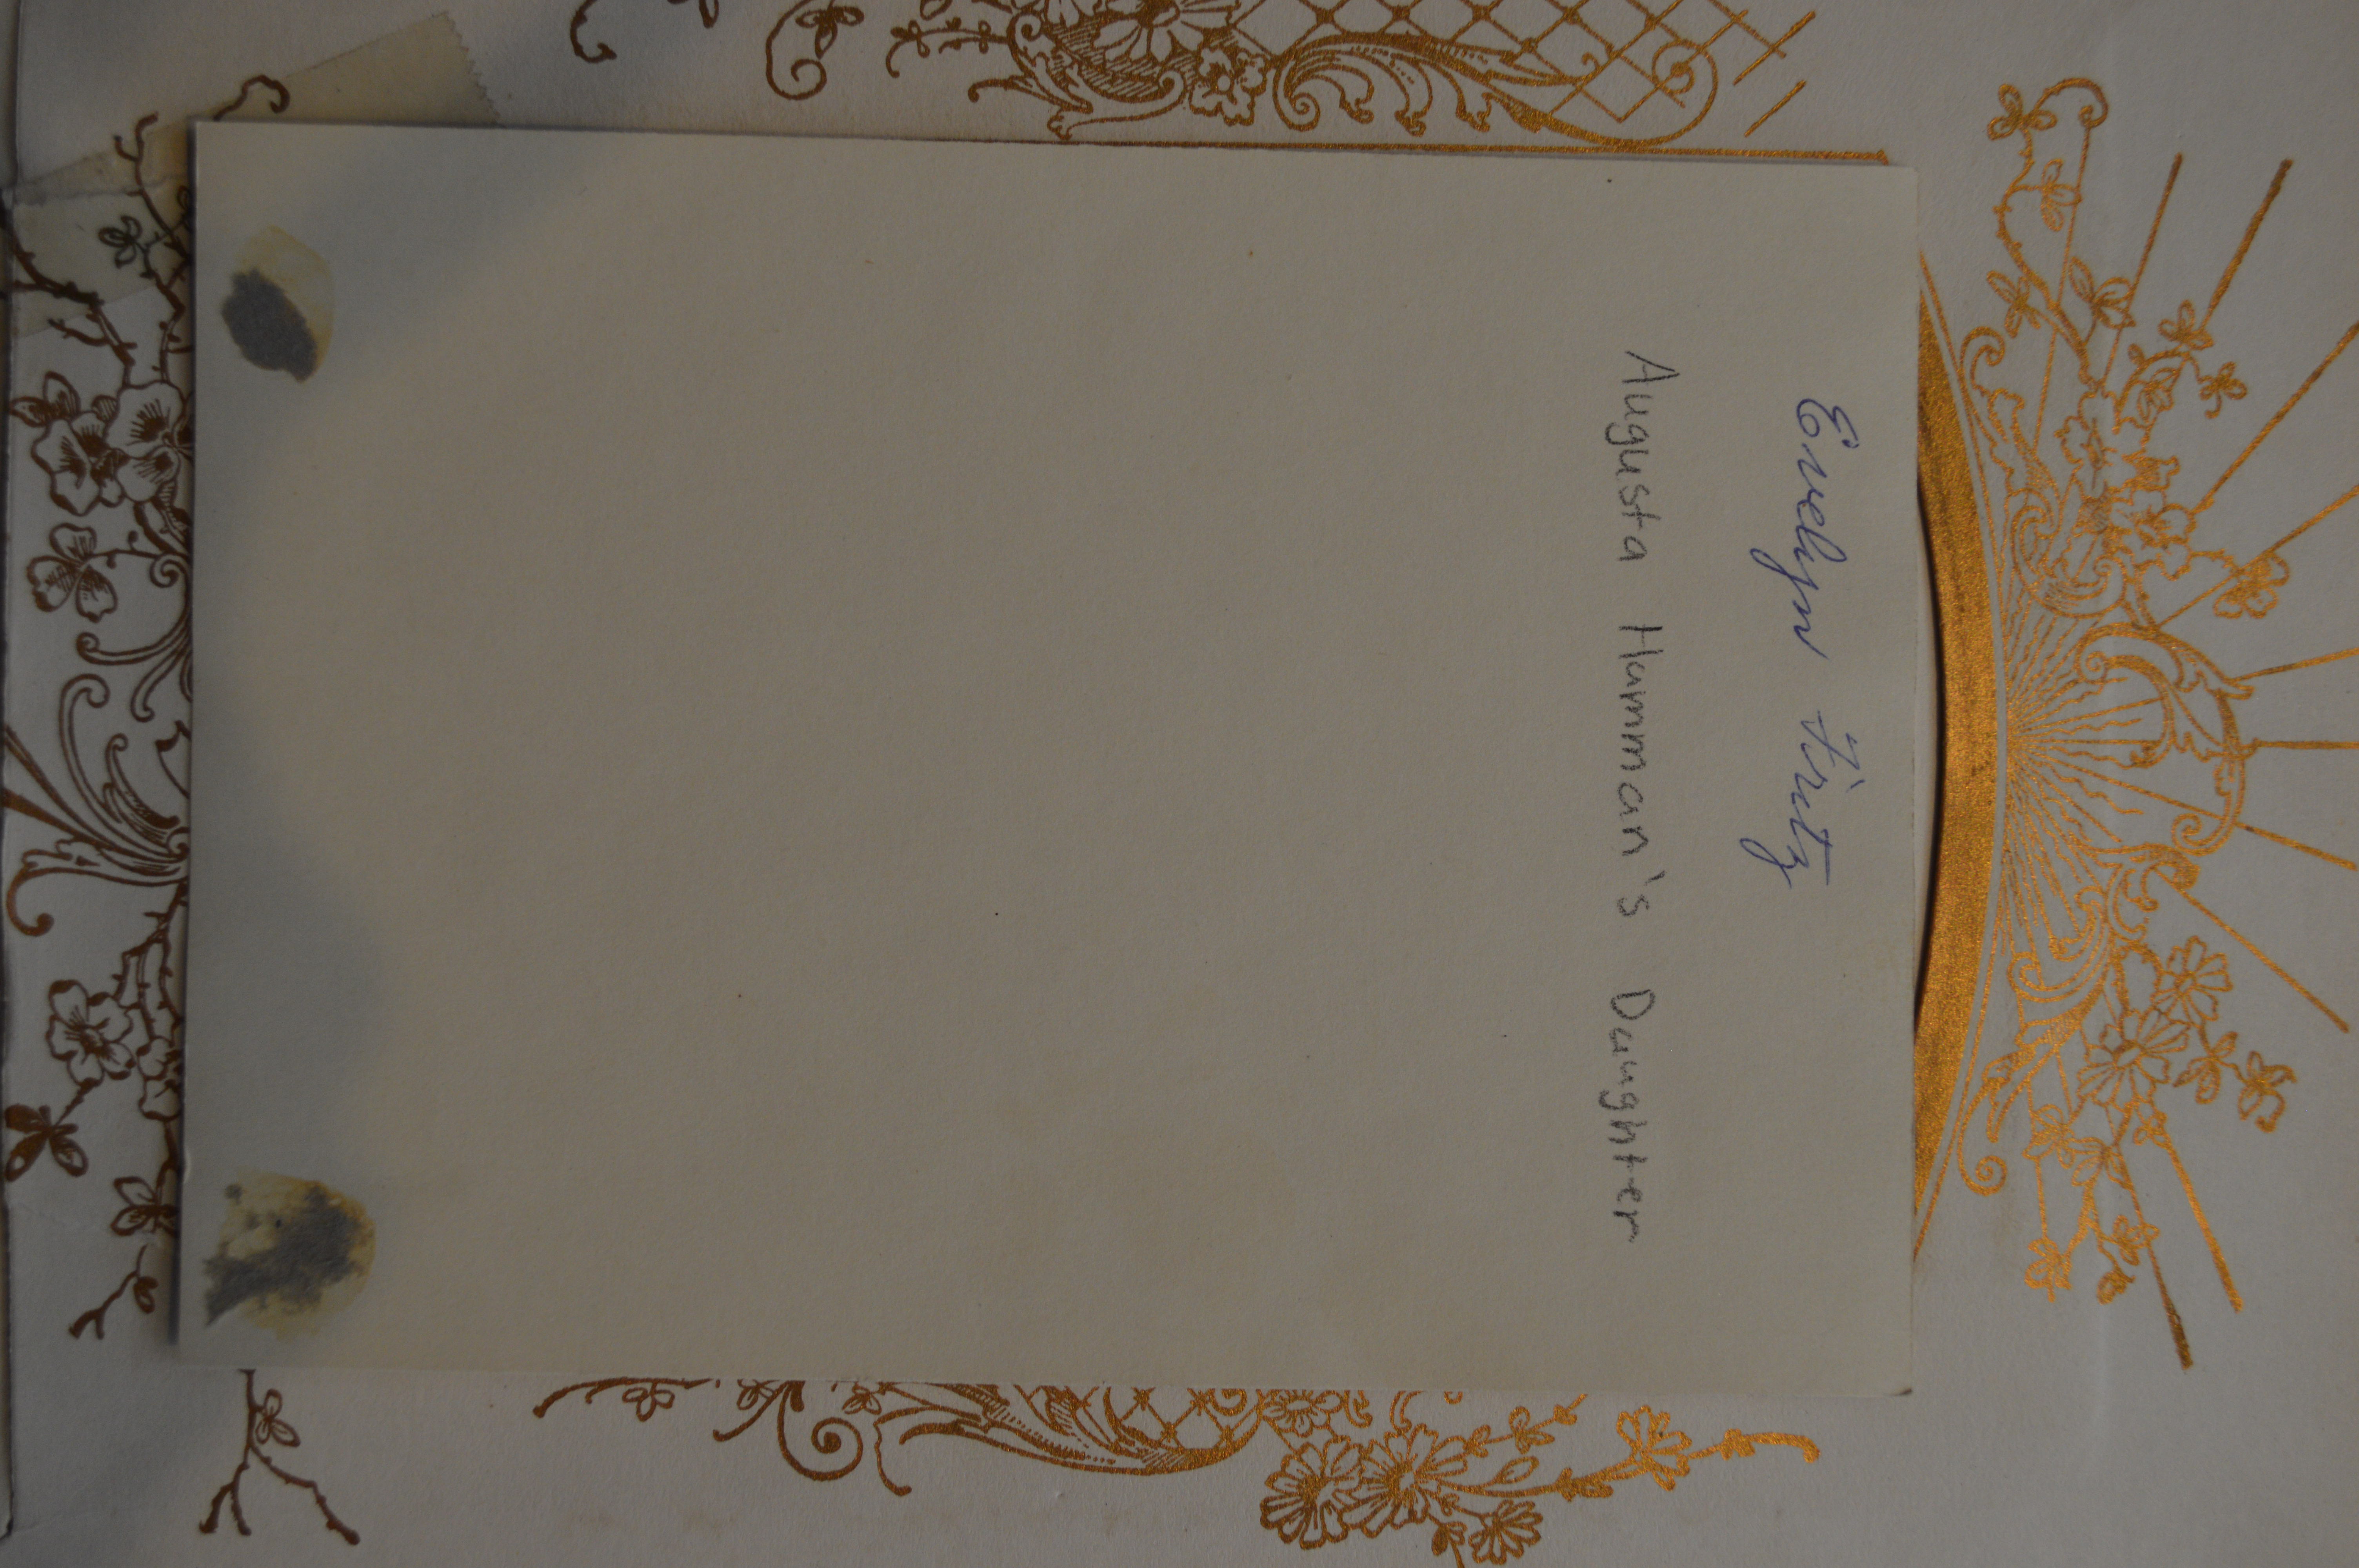 Evelyn Fritz
Augusta Hamman's Daughter